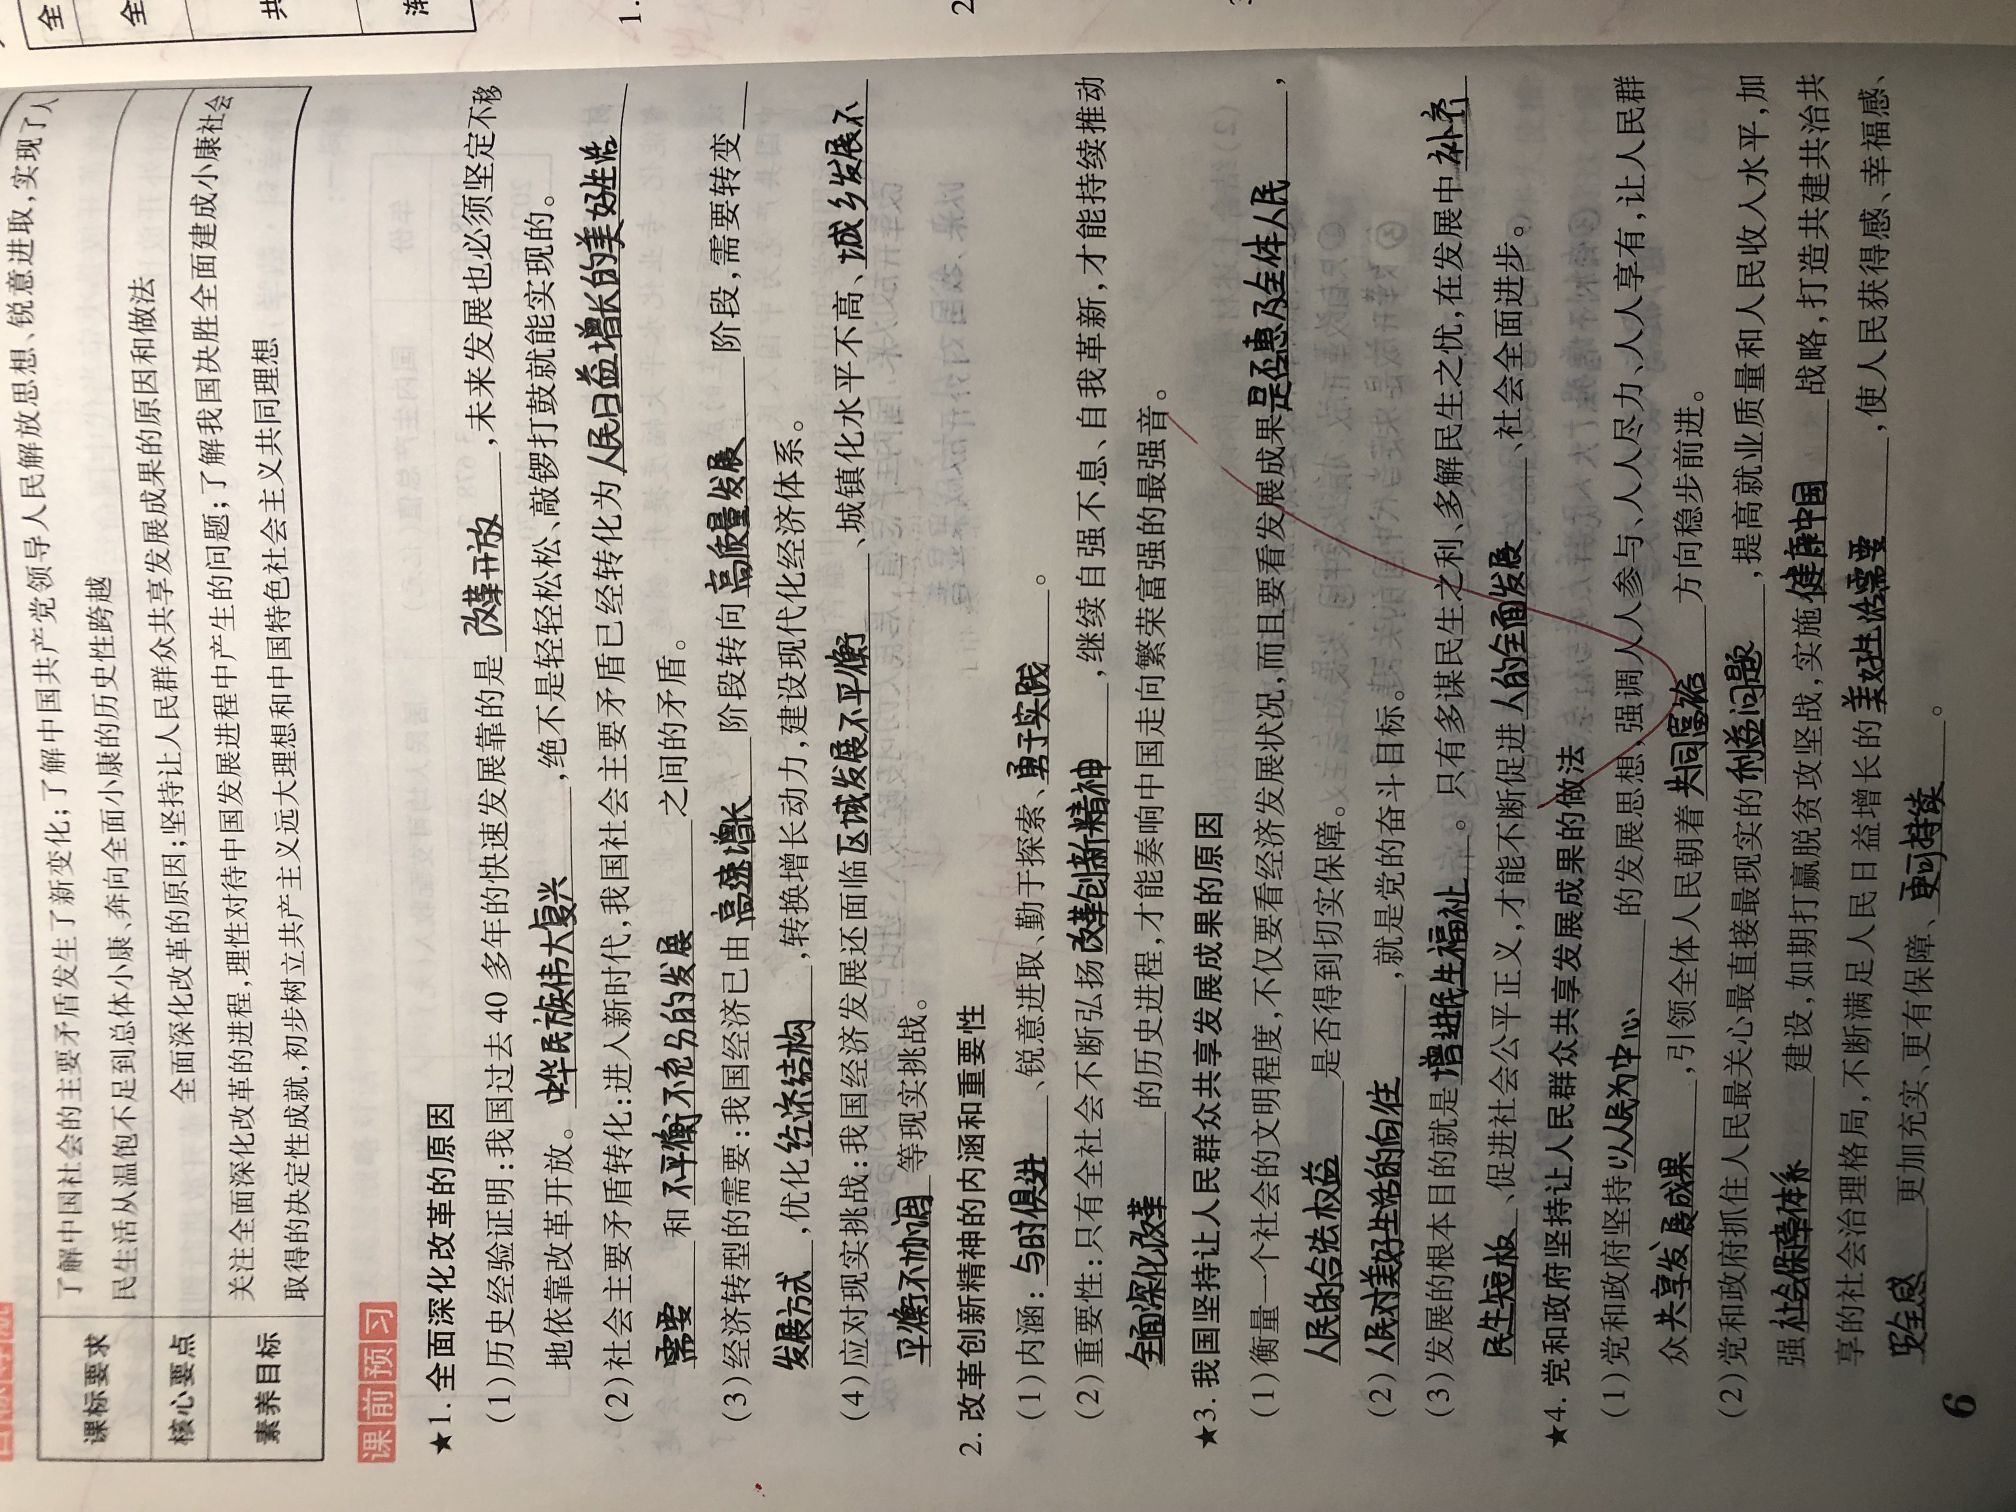 目标导航
课标要求
了解中国社会的主要矛盾发生了新变化;了解中国共产党领导人民解放思想、锐意进取,实现了人
民生活从温饱不足到总体小康、奔向全面小康的历史性跨越
核心要点
全面深化改革的原因;坚持让人民群众共享发展成果的原因和做法
素养目标
关注全面深化改革的进程,理性对待中国发展进程中产生的问题;了解我国决胜全面建成小康社会
取得的决定性成就,初步树立共产主义远大理想和中国特色社会主义共同理想
课前预习
★1. 全面深化改革的原因
(1)历史经验证明:我国过去 40 多年的快速发展靠的是 改革开放 ,未来发展也必须坚定不移
地依靠改革开放。中华民族伟大复兴 ,绝不是轻轻松松、敲锣打鼓就能实现的。
(2)社会主要矛盾转化:进入新时代,我国社会主要矛盾已经转化为 人民日益增长的美好生活
需要 和 不平衡不充分的发展 之间的矛盾。
(3)经济转型的需要:我国经济已由 高速增长 阶段转向 高质量发展 阶段,需要转变
发展方式 ,优化 经济结构 ,转换增长动力,建设现代化经济体系。
(4)应对现实挑战:我国经济发展还面临 区域发展不平衡 、城镇化水平不高、城乡发展不
平衡不协调 等现实挑战。
2. 改革创新精神的内涵和重要性
(1)内涵: 与时俱进 、锐意进取、勤于探索、勇于实践 。
(2)重要性:只有全社会不断弘扬 改革创新精神 ,继续自强不息、自我革新,才能持续推动
全面深化改革 的历史进程,才能奏响中国走向繁荣富强的最强音。
★3. 我国坚持让人民群众共享发展成果的原因
(1)衡量一个社会的文明程度,不仅要看经济发展状况,而且要看发展成果 是否惠及全体人民 ,
人民的合法权益 是否得到切实保障。
(2) 人民对美好生活的向往 ,就是党的奋斗目标。
(3)发展的根本目的就是 增进民生福祉 。只有多谋民生之利、多解民生之忧,在发展中 补齐
民生短板 、促进社会公平正义,才能不断促进 人的全面发展 、社会全面进步。
★4. 党和政府坚持让人民群众共享发展成果的做法
(1)党和政府坚持 以人民为中心 的发展思想,强调人人参与、人人尽力、人人享有,让人民群
众 共享发展成果 ,引领全体人民朝着 共同富裕 方向稳步前进。
(2)党和政府抓住人民最关心最直接最现实的 利益问题 ,提高就业质量和人民收入水平,加
强 社会保障体系 建设,如期打赢脱贫攻坚战,实施 健康中国 战略,打造共建共治共
享的社会治理格局,不断满足人民日益增长的 美好生活需要 ,使人民获得感、幸福感、
安全感 更加充实、更有保障、更可持续 。
6